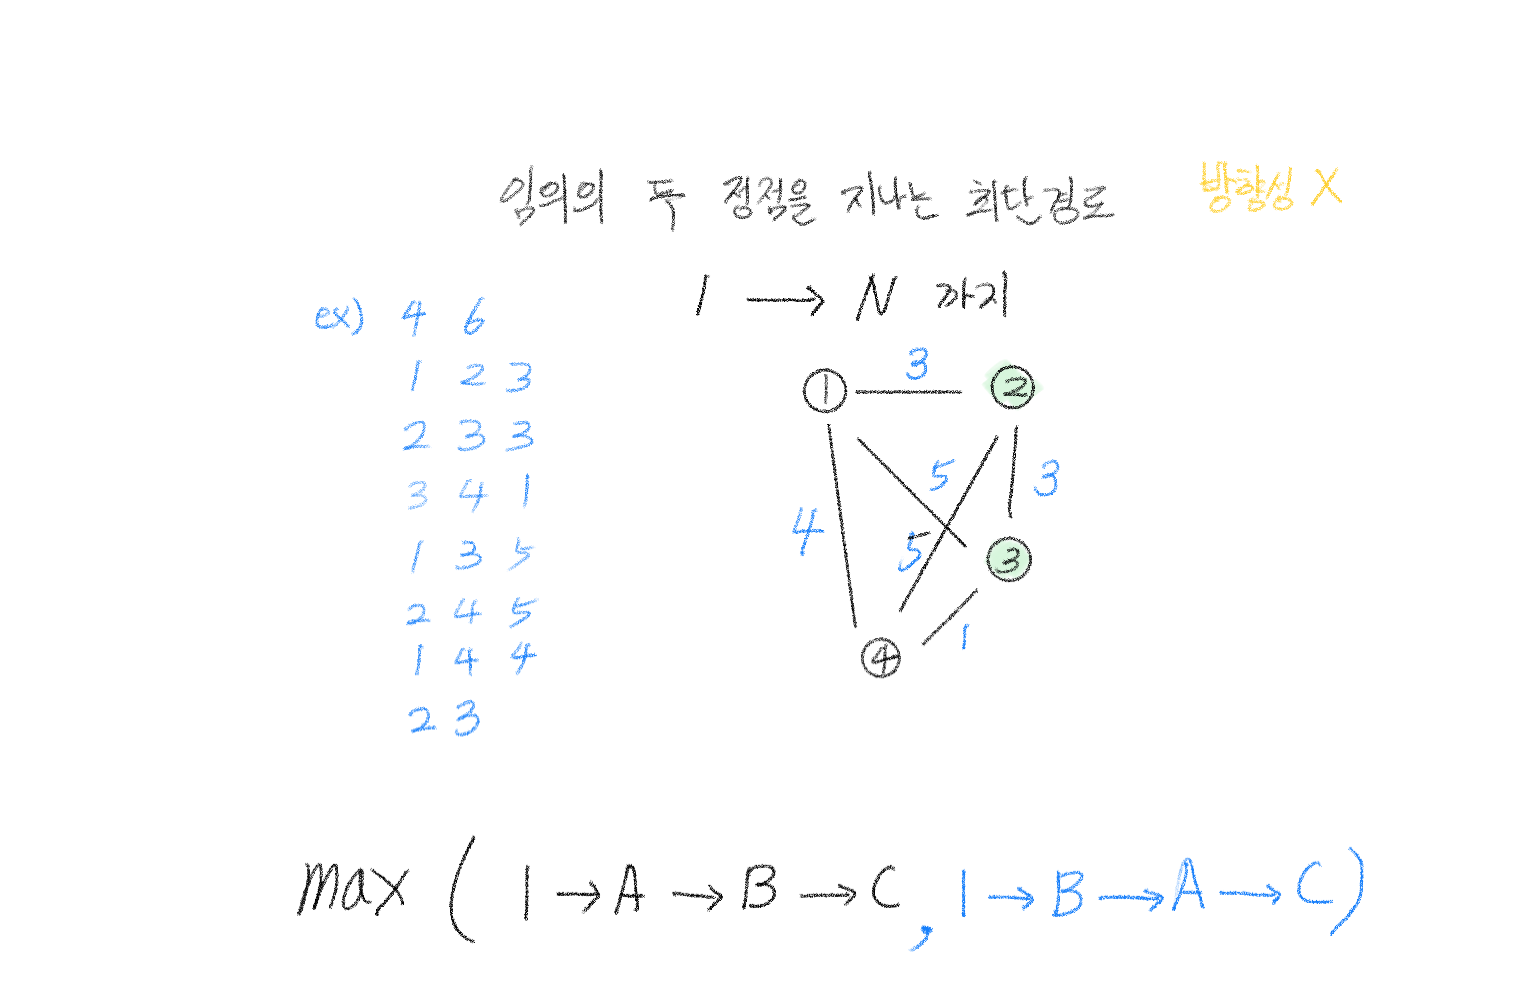 임의의 두 정점을 지나는 최단경로 방향성 X
1 → N 까지
ex) 4 6
1 2 3
2 3 3
3 4 1
1 3 5
2 4 5
1 4 4
2 3
1 3 2
5 3
4 5
3
4 1
max ( 1 → A → B → C , 1 → B → A → C )